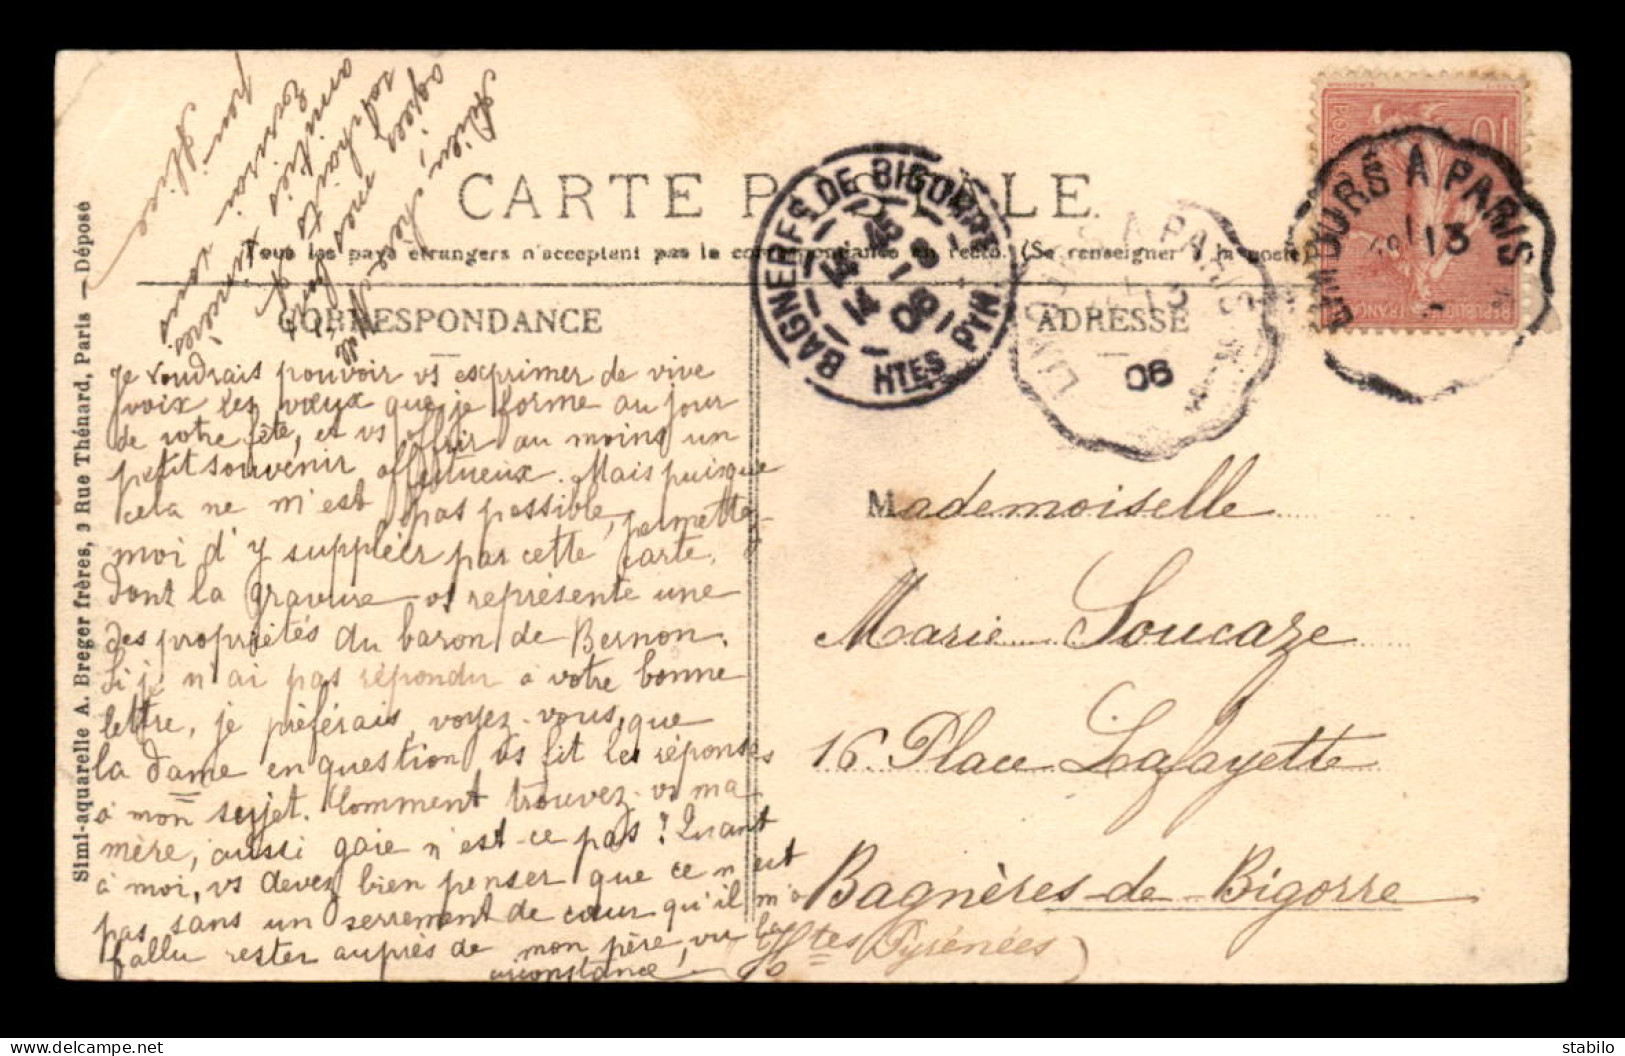 CARTE POSTALE
Tous les pays étrangers n'acceptent pas la correspondance au recto. (Se renseigner à la poste)
CORRESPONDANCE
ADRESSE
Simi-aquarelle A. Breger frères, 9 Rue Thénard, Paris — Déposé
Je voudrais pouvoir vs exprimer de vive
voix les vœux que je forme au jour
de votre fête, et vs offrir au moins un
petit souvenir affectueux. Mais puisque
cela ne m'est pas possible, permettez-
moi d'y suppléer par cette carte.
dont la gravure vs représente une
des propriétés du baron de Bernon.
Si je n'ai pas répondu à votre bonne
lettre, je préférais, voyez-vous, que
la dame en question vs fit les réponses
à mon sujet. Comment trouvez-vs ma
mère, aussi gaie n'est-ce pas? Quant
à moi, vs devez bien penser que ce n'est
pas sans un serrement de cœur qu'il m'a
fallu rester auprès de mon père, vu la
circonstance
Adieu, chère Melle
agréez mes
amitiés
pour
Alice
BAGNERES DE BIGORRE
14 1 06
HTES PYR
LIMOURS A PARIS
13
06
LIMOURS A PARIS
13
10
REPUBLIQUE FRANÇAISE
Mademoiselle
Marie Soucaze
16 Place Lafayette
Bagnères-de-Bigorre
(Htes Pyrénées)
delcampe.net
stabilo